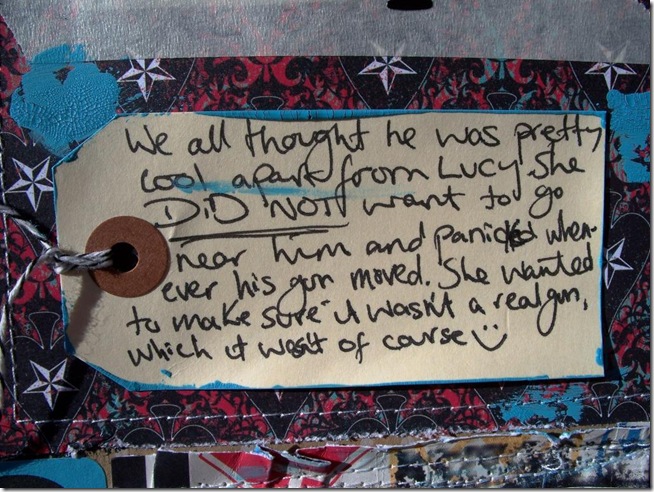 We all thought he was pretty
cool apart from LUCY. She
DiD NOT want to go
near him and panicked when-
ever his gun moved. She wanted
to make sure it wasn't a real gun,
which it wasn't of course